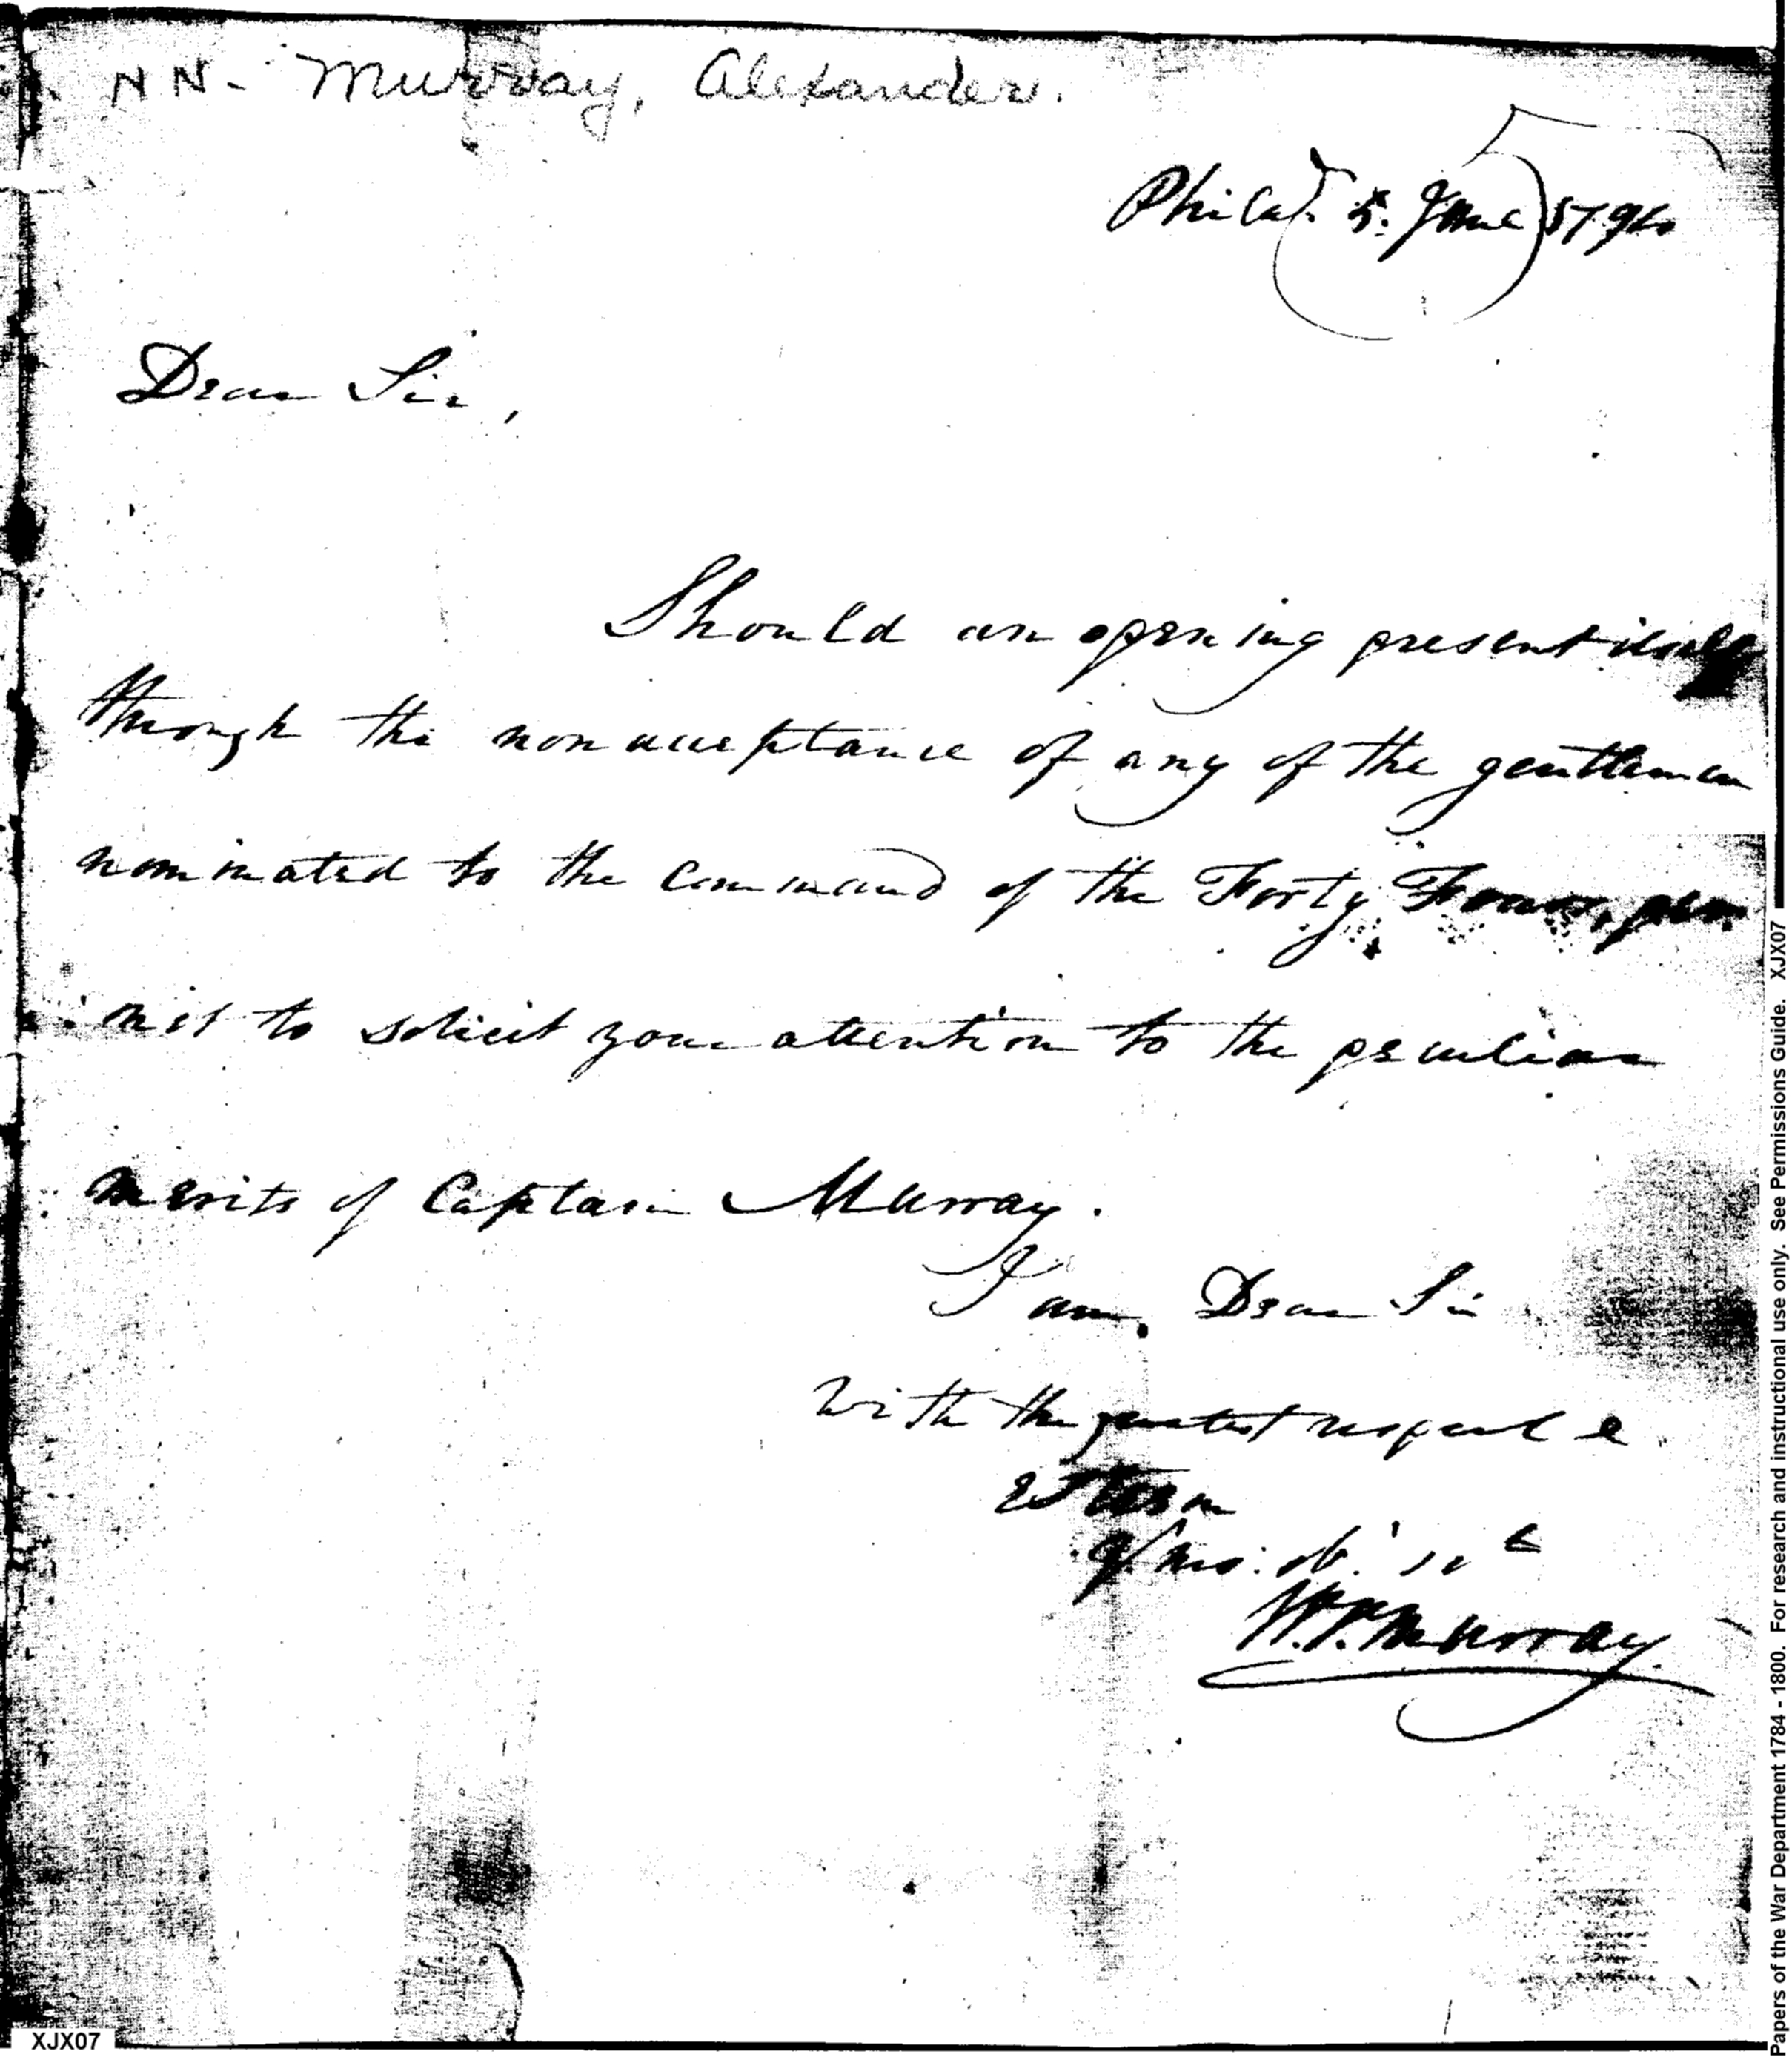 NN- Murray, Alexander.
Philad. 5. June 1794
Dear Sir,
Should an opening present itself
through the nonacceptance of any of the gentlemen
nominated to the command of the Forty Fours, per
mit to solicit your attention to the peculiar
merits of Captain Murray.
I am, Dear Sir
with the greatest respect &
esteem
Yr. mo: ob.
W.V. Murray.
XJX07
Papers of the War Department 1784 - 1800. For research and instructional use only. See Permissions Guide. XJX07